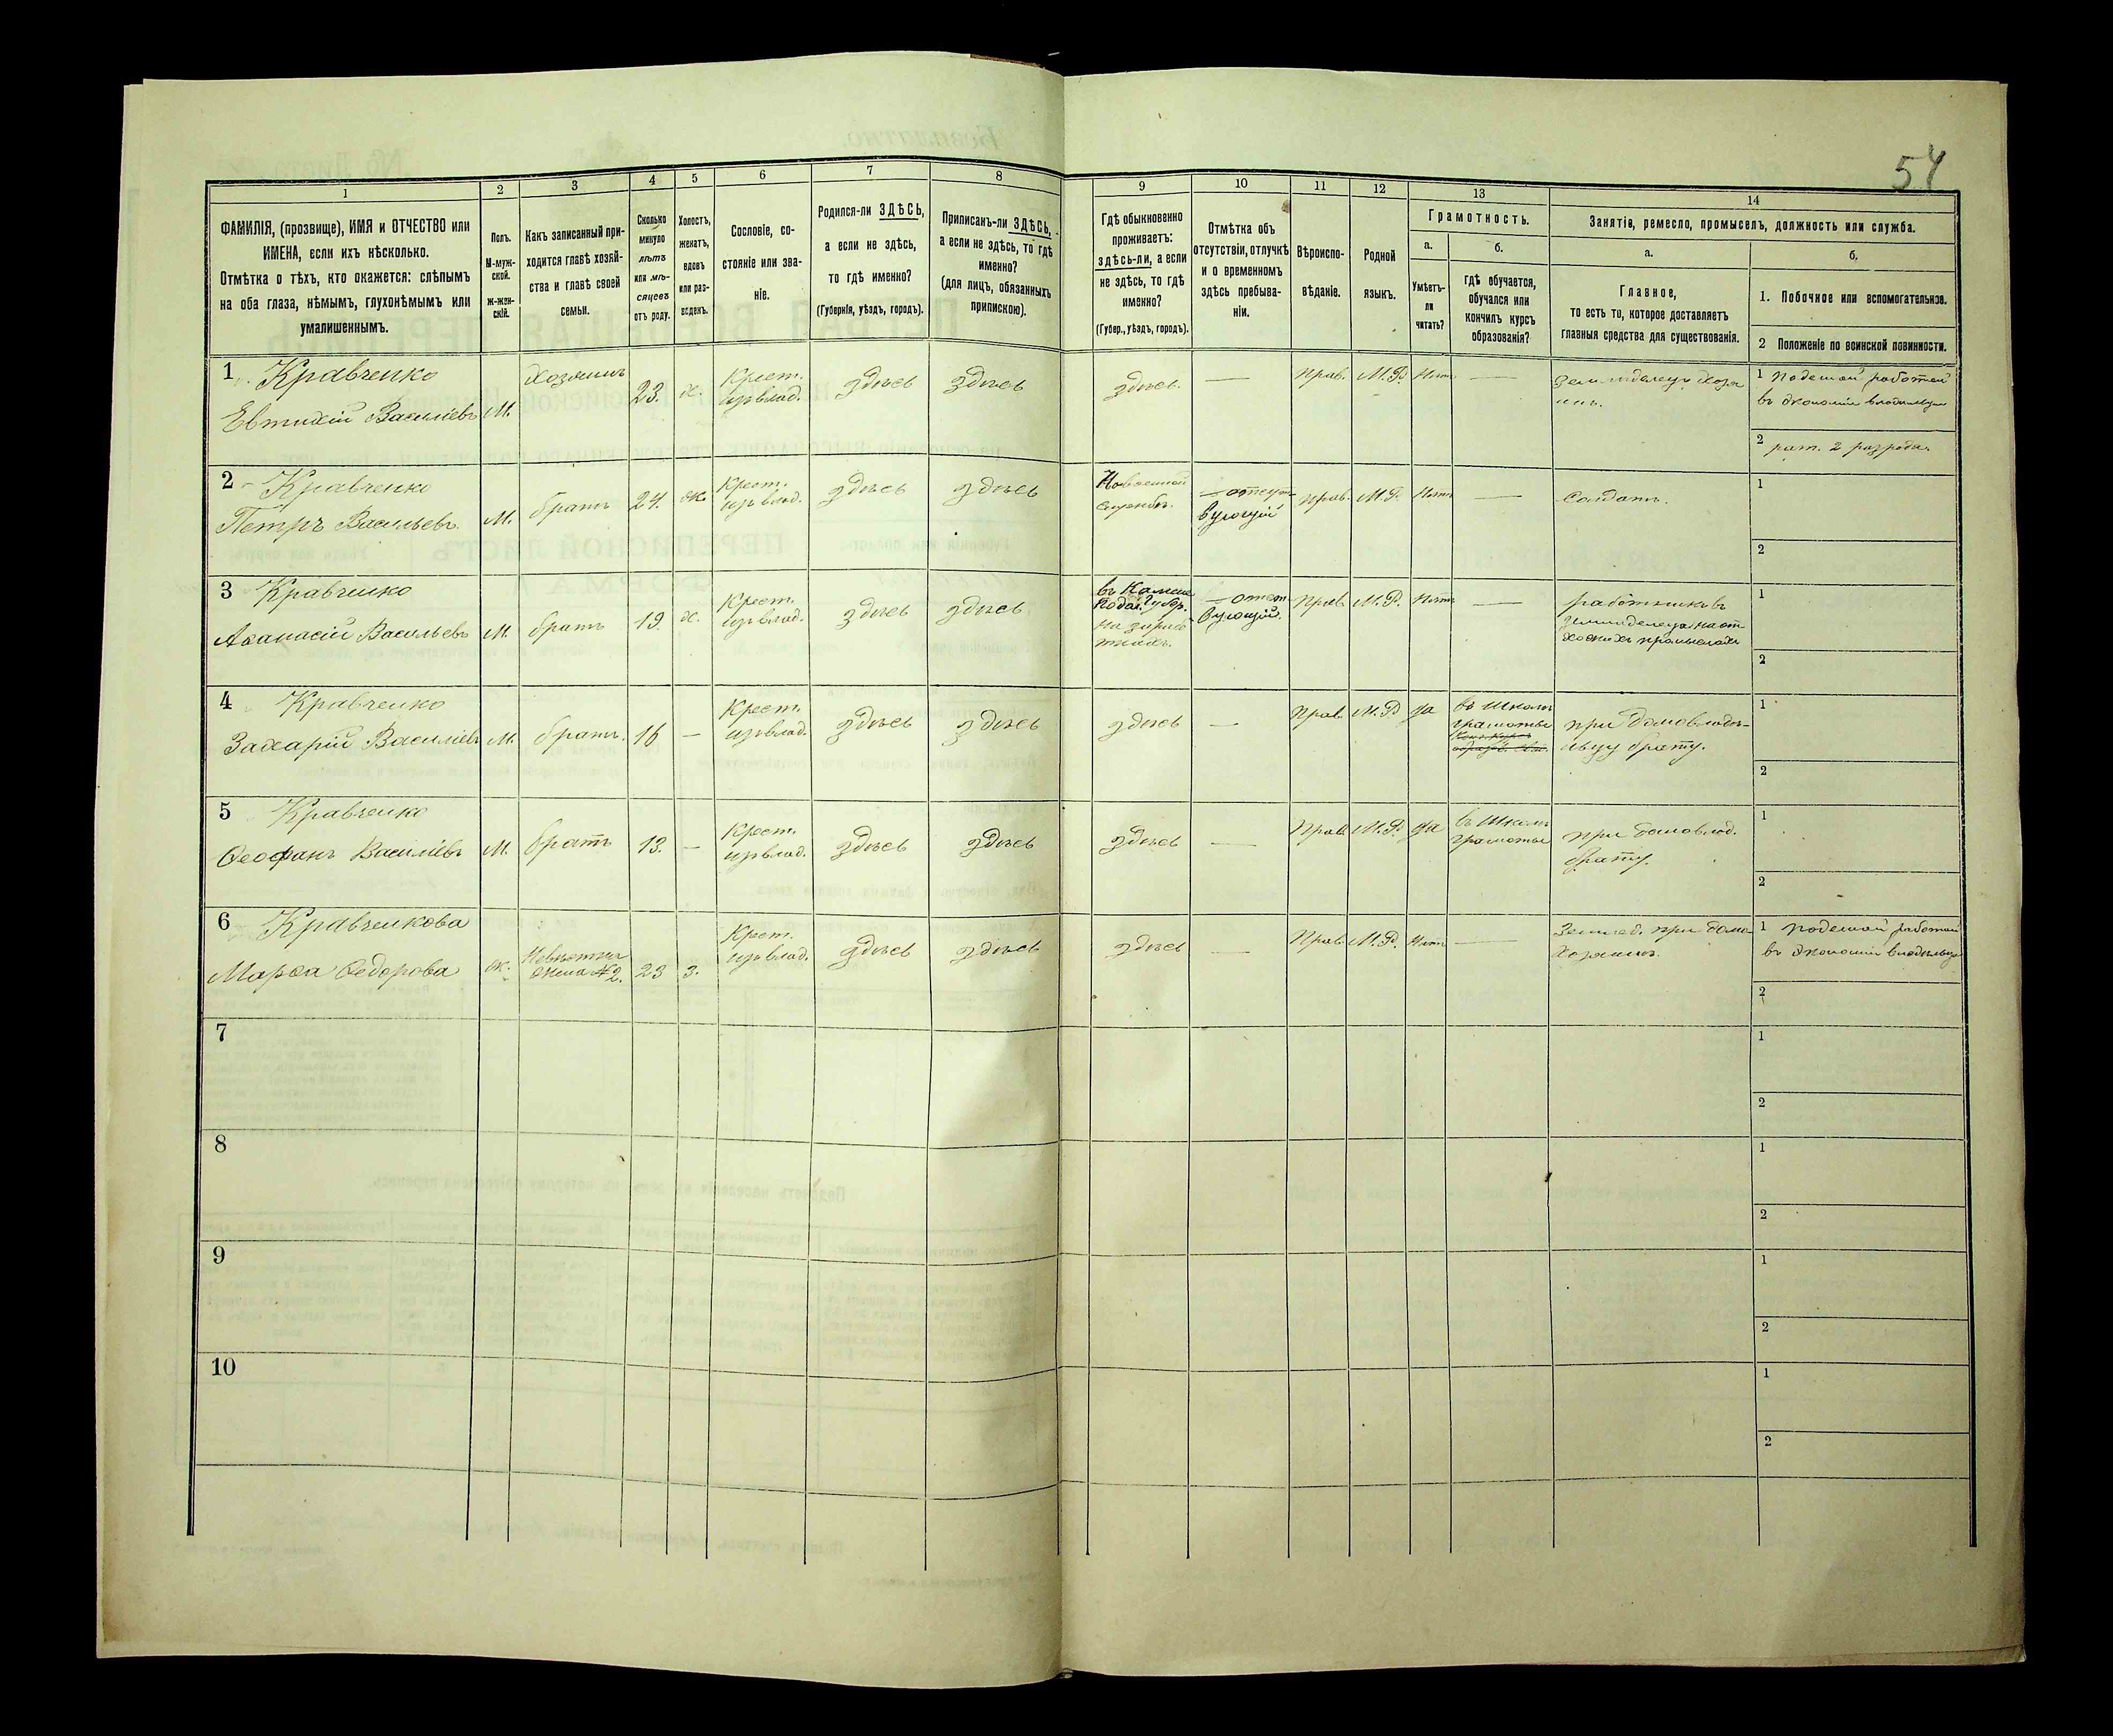 54
1
2
3
4
5
6
7
8
9
10
11
12
13
14
ФАМИЛІЯ, (прозвище), ИМЯ и ОТЧЕСТВО или
ИМЕНА, если ихъ нѣсколько.
Отмѣтка о тѣхъ, кто окажется: слѣпымъ
на оба глаза, нѣмымъ, глухонѣмымъ или
умалишеннымъ.
Полъ.
М-муж-
ской.
Ж-жен-
скій.
Какъ записанный при-
ходится главѣ хозяй-
ства и главѣ своей
семьи.
Сколько
минуло
лѣтъ
или мѣ-
сяцевъ
отъ роду.
Холостъ,
женатъ,
вдовъ
или раз-
веденъ.
Сословіе, со-
стояніе или зва-
ніе.
Родился-ли ЗДѢСЬ,
а если не здѣсь,
то гдѣ именно?
(Губернія, уѣздъ, городъ).
Приписанъ-ли ЗДѢСЬ,
а если не здѣсь, то гдѣ
именно?
(для лицъ, обязанныхъ
припискою).
Гдѣ обыкновенно
проживаетъ:
здѣсь-ли, а если
не здѣсь, то гдѣ
именно?
(Губер., уѣздъ, городъ).
Отмѣтка объ
отсутствіи, отлучкѣ
и о временномъ
здѣсь пребыва-
ніи.
Вѣроиспо-
вѣданіе.
Родной
языкъ.
Грамотность.
а.
Умѣетъ-
ли
читать?
б.
Гдѣ обучается,
обучался или
кончилъ курсъ
образованія?
Занятіе, ремесло, промыселъ, должность или служба.
а.
Главное,
то есть то, которое доставляетъ
главныя средства для существованія.
б.
1. Побочное или вспомогательное.
2 Положеніе по воинской повинности.
1 Кравченко
Евтихій Васильевъ
М.
Хозяинъ
23.
х.
Крест.
изъ влад.
здѣсь
здѣсь
здѣсь.
—
Прав.
М.Р.
Нѣтъ
—
Земледелецъ хозя
инъ.
1 Поденной работой
въ экономіи владѣльца
2 рат. 2 разряда.
2 Кравченко
Петръ Васильевъ.
М.
братъ
24.
ж.
Крест.
изъ влад.
здѣсь
здѣсь
На военной
службѣ.
— отсут
вующій
Прав.
М.Р.
Нѣтъ
—
Солдатъ.
1
2
3 Кравченко
Аѳанасій Васильевъ
М.
братъ
19
х.
Крест.
изъ влад.
здѣсь
здѣсь
Подол. губер.
— отсут
вующій.
Прав.
М.Р.
Нѣтъ
—
работникъ
на от
хожихъ промыслахъ
1
2
4 Кравченко
Захарій Васильевъ
М.
братъ.
16
—
Крест.
изъ влад.
здѣсь
здѣсь
здѣсь
—
Прав.
М.Р.
да
въ Школѣ
грамоты
при домовладѣ-
льцу брату.
1
2
5 Кравченко
Ѳеофанъ Васильевъ
М.
братъ
13.
—
Крест.
изъ влад.
здѣсь
здѣсь
здѣсь
—
Прав.
М.Р.
да
въ Школѣ
грамоты
при домовлад.
брату.
1
2
6 Кравченкова
Марѳа Ѳедорова
ж.
Невѣстка
жена №2.
23
з.
Крест.
изъ влад.
здѣсь
здѣсь
здѣсь
—
Прав.
М.Р.
Нѣтъ
—
Землед. при домо
хозяинѣ.
1 поденной работой
въ экономіи владѣльца
2
7
1
2
8
1
2
9
1
2
10
1
2